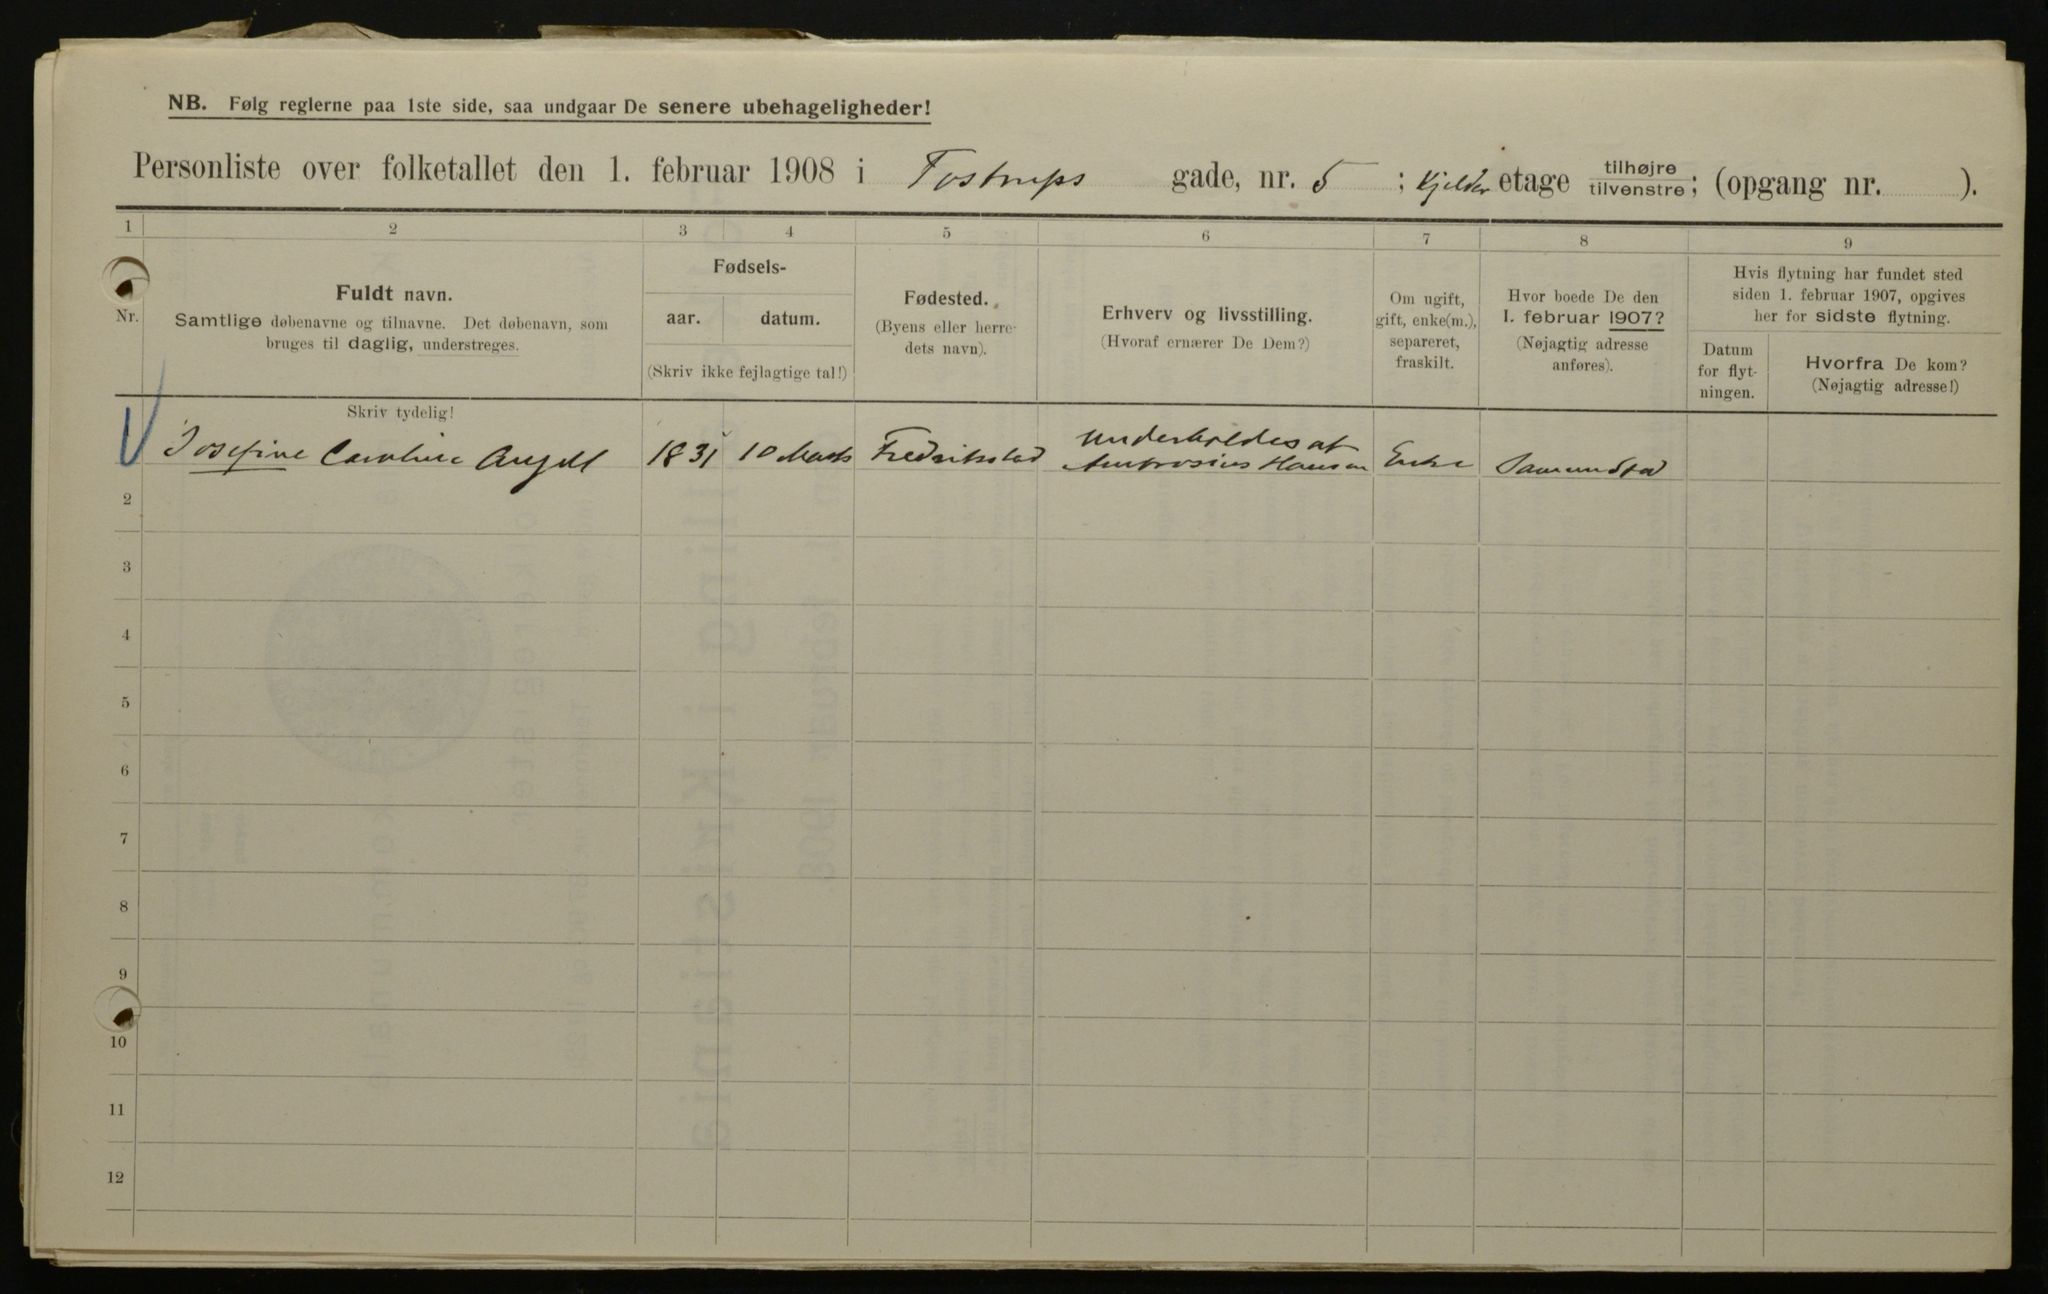 NB. Følg reglerne paa 1ste side, saa undgaar De senere ubehageligheder!
Personliste over folketallet den 1. februar 1908 i Tostrups gade, nr. 5 ; Kjelder etage tilhøjre tilvenstre; (opgang nr. ).
1 2 3 4 5 6 7 8 9
Nr.
Fuldt navn.
Samtlige døbenavne og tilnavne. Det døbenavn, som
bruges til daglig, understreges.
Skriv tydelig!
Fødsels-
aar. datum.
(Skriv ikke fejlagtige tal!)
Fødested.
(Byens eller herre-
dets navn).
Erhverv og livsstilling.
(Hvoraf ernærer De Dem?)
Om ugift,
gift, enke(m.),
separeret,
fraskilt.
Hvor boede De den
1. februar 1907?
(Nøjagtig adresse
anføres).
Hvis flytning har fundet sted
siden 1. februar 1907, opgives
her for sidste flytning.
Datum
for flyt-
ningen.
Hvorfra De kom?
(Nøjagtig adresse!)
underholdes af
Josefine Caroline Angell 1831 10 Marts Fredrikstad Ambrosius Hansen Enke Sammested
2
3
4
5
6
7
8
9
10
11
12